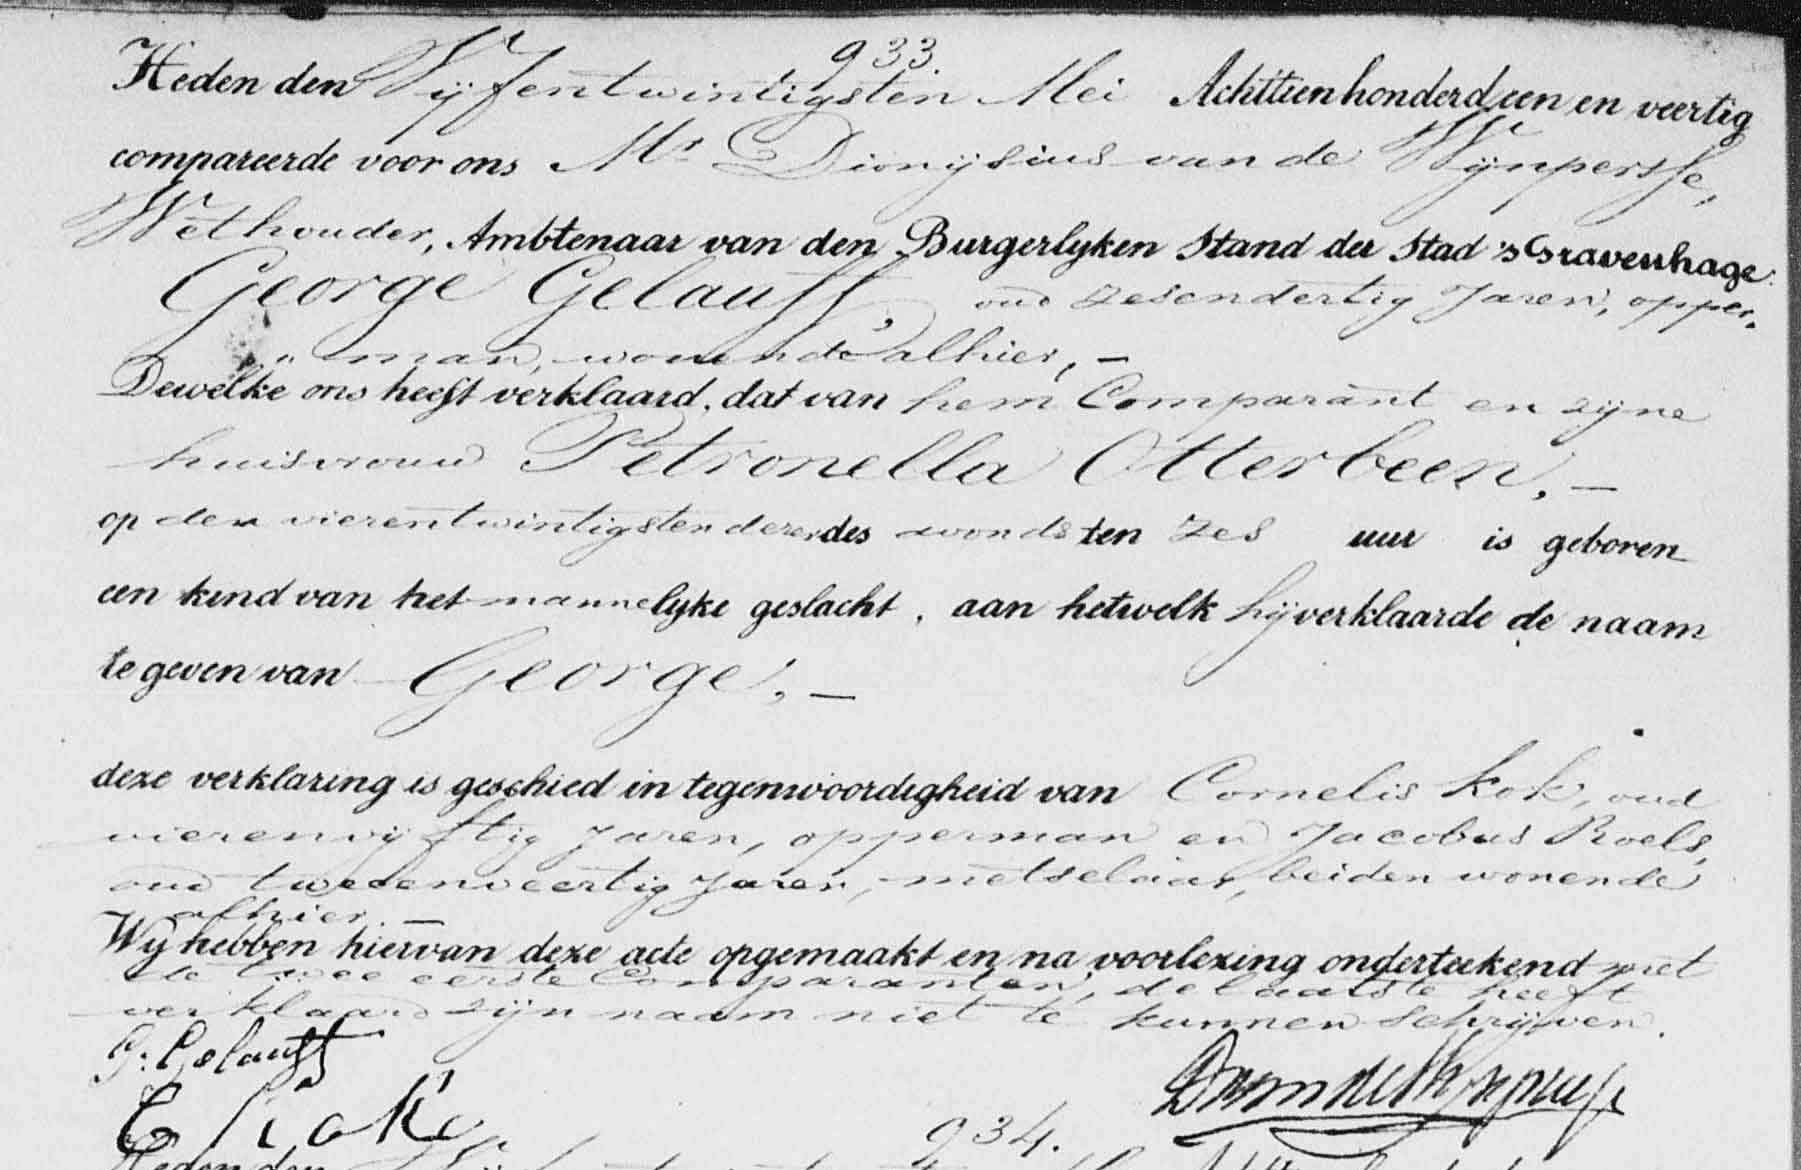 933.
Heden den Vijfentwintigsten Mei Achttienhonderd een en veertig
compareerde voor ons Mr. Dionijsius van de Wijnpersse,
Wethouder, Ambtenaar van den Burgerlyken Stand der Stad 's Gravenhage
George Gelauff, oud zesendertig Jaren, opper-
man, wonende alhier, –
Dewelke ons heeft verklaard, dat van hem Comparant en zijne
huisvrouw Petronella Otterbeen, –
op den vierentwintigsten dezer des avonds ten zes uur is geboren
een kind van het mannelyke geslacht, aan hetwelk hij verklaarde de naam
te geven van George, –
deze verklaring is geschied in tegenwoordigheid van Cornelis Kok, oud
vierenvijftig Jaren, opperman en Jacobus Roels,
oud tweeenveertig Jaren, metselaar, beiden wonende
alhier. –
Wij hebben hiervan deze acte opgemaakt en na voorlezing onderteekend met
de twee eerste Comparanten, de laatste heeft
verklaard zijn naam niet te kunnen schrijven.
G. Gelauff
C Kok
934.
Heden den